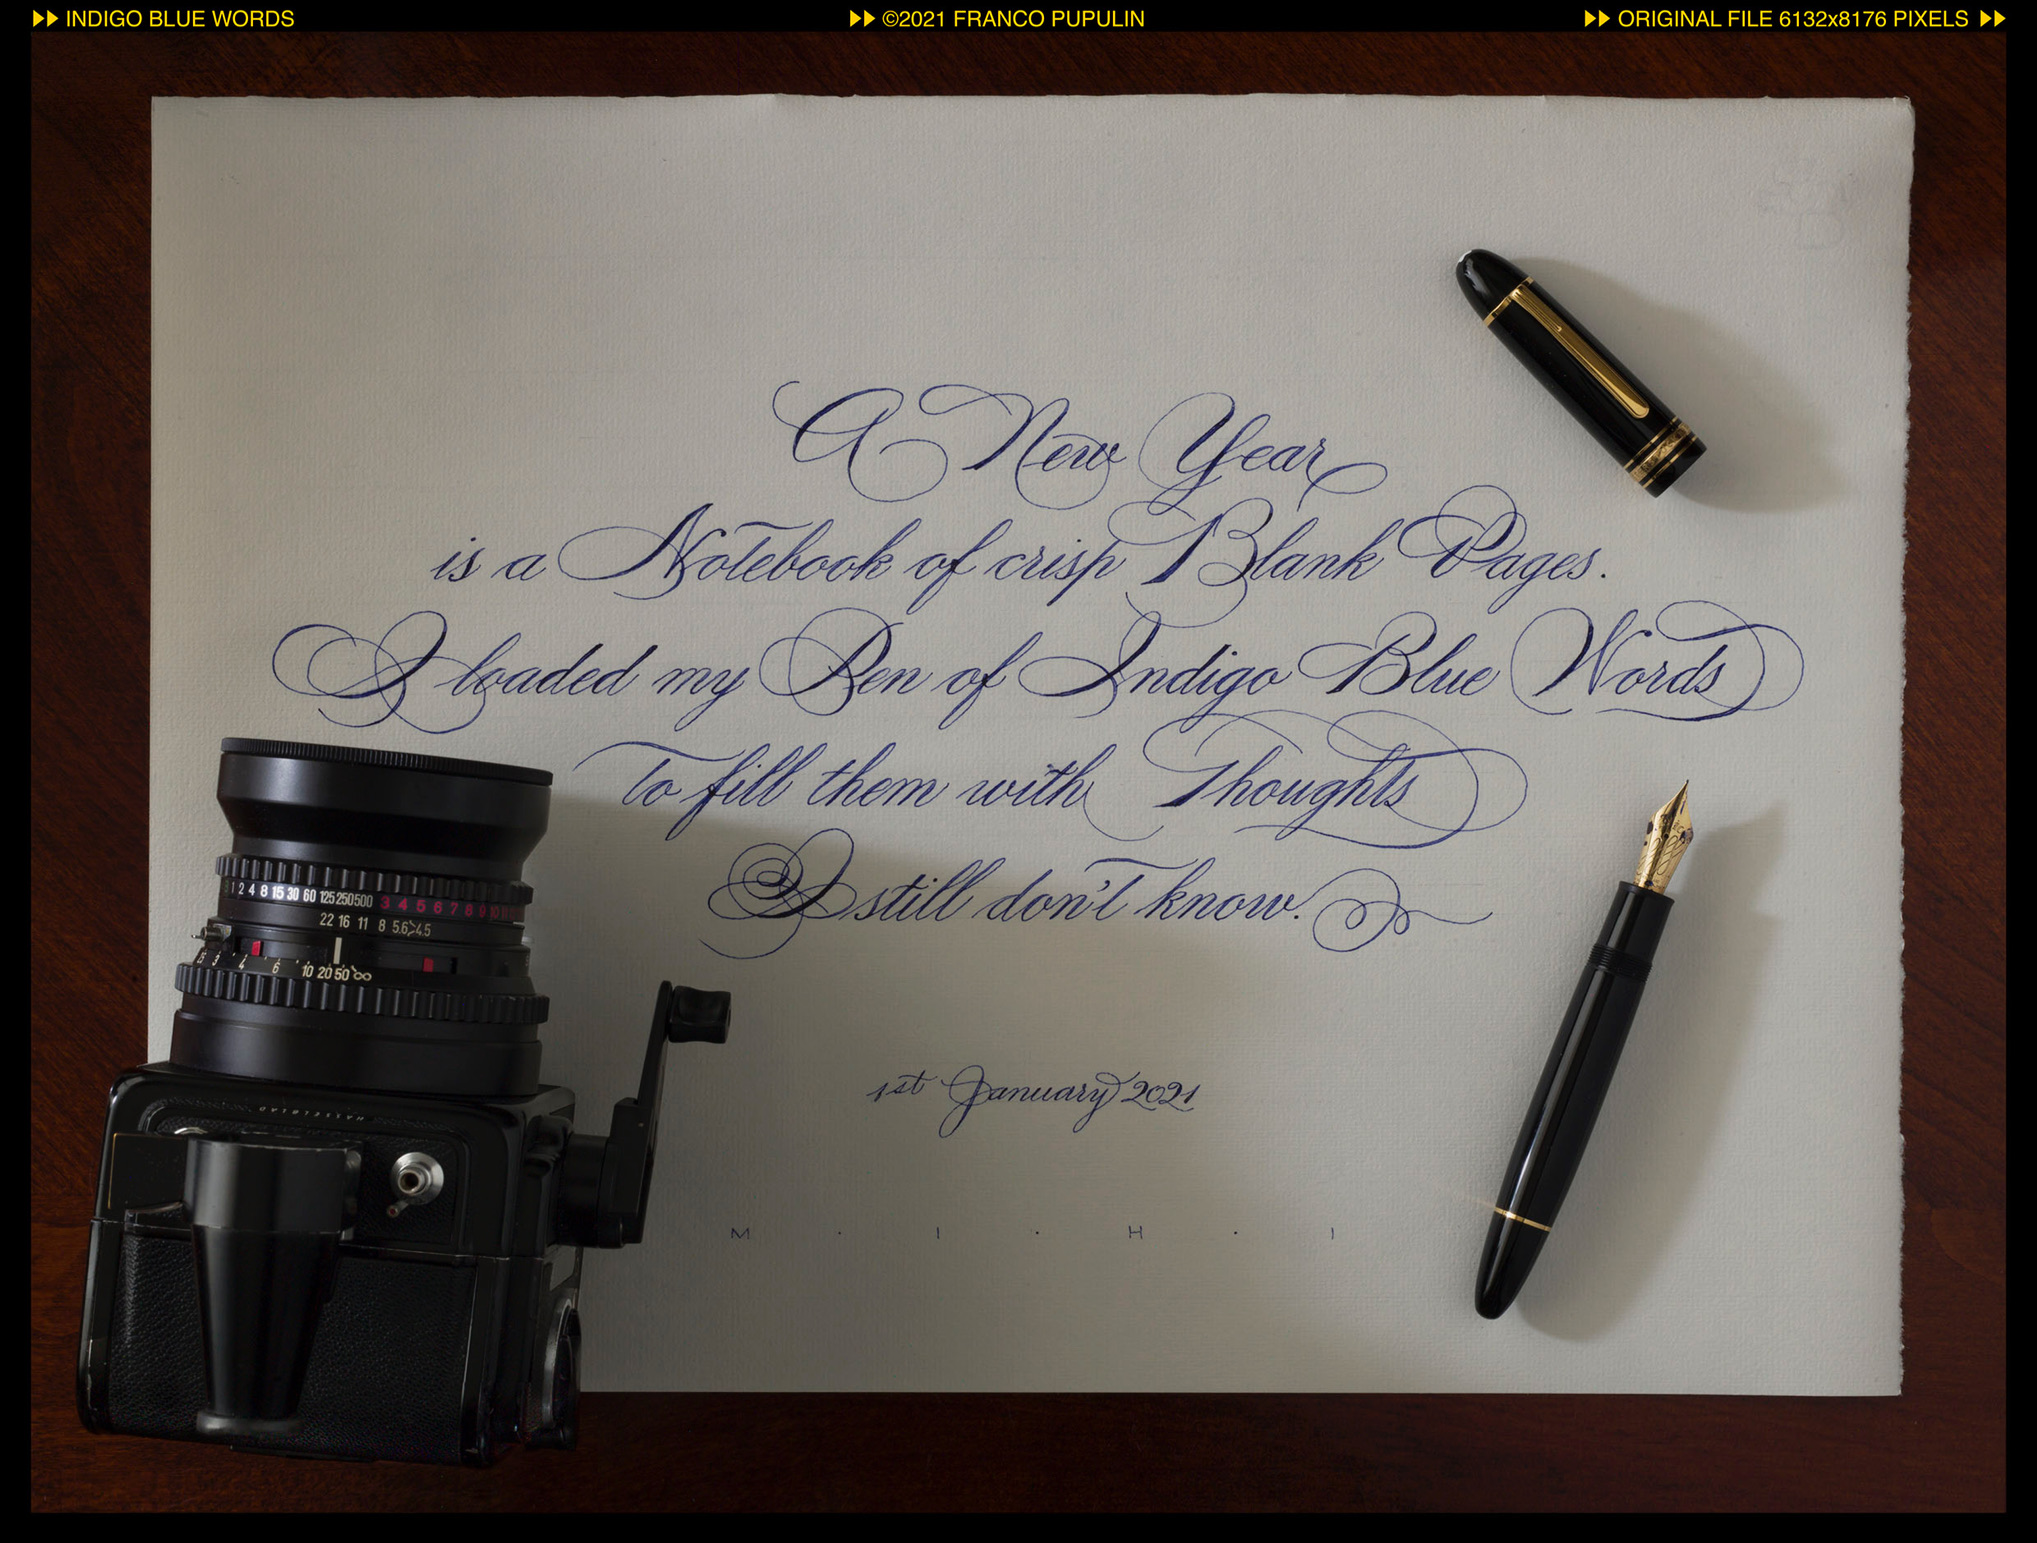 INDIGO BLUE WORDS
©2021 FRANCO PUPULIN
ORIGINAL FILE 6132x8176 PIXELS
A New Year
is a Notebook of crisp Blank Pages.
I loaded my Pen of Indigo Blue Words
to fill them with Thoughts
I still don't know.
1st January 2021
M · I · H · I
1 2 4 8 15 30 60 125 250 500 3 4 5 6 7 8 9 10
22 16 11 8 5.6 4.5
3 4 6 10 20 50 ∞
HASSELBLAD